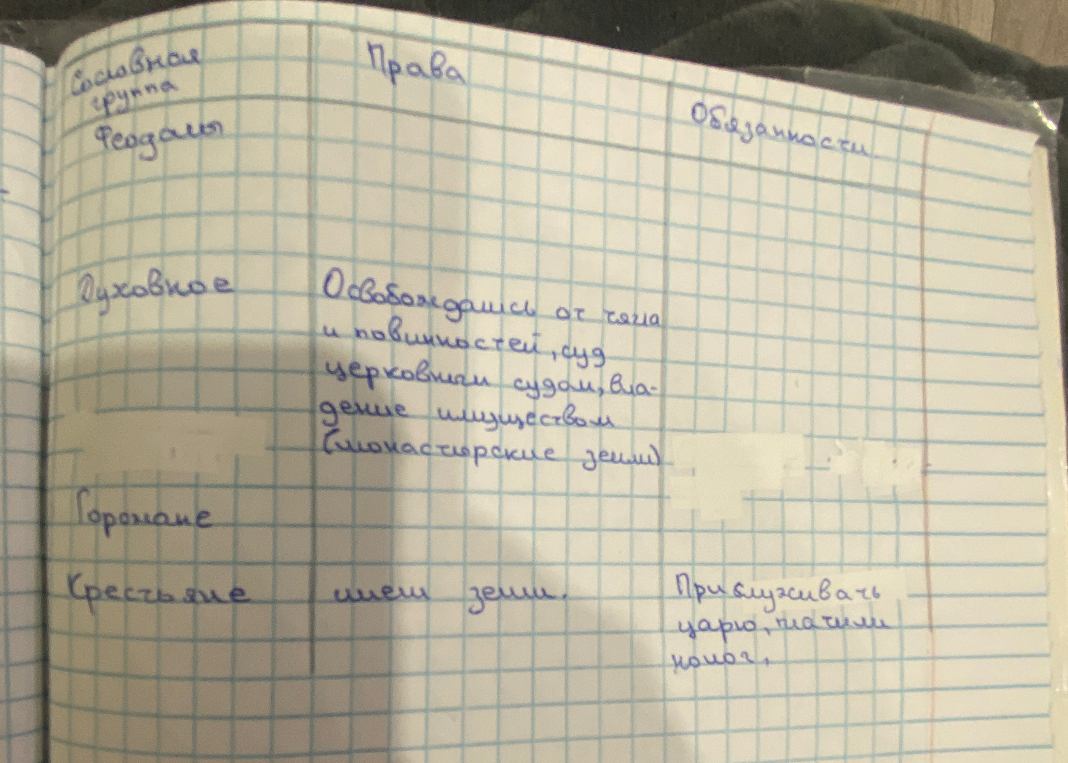 Сословная
группа
Права
Обязанности
Феодалы
Духовное
Освобождались от тягла
и повинностей, суд
церковным судом, вла-
дение имуществом
(монастырские земли)
Горожане
Крестьяне
имели земли.
Прислуживать
царю, платили
налог,